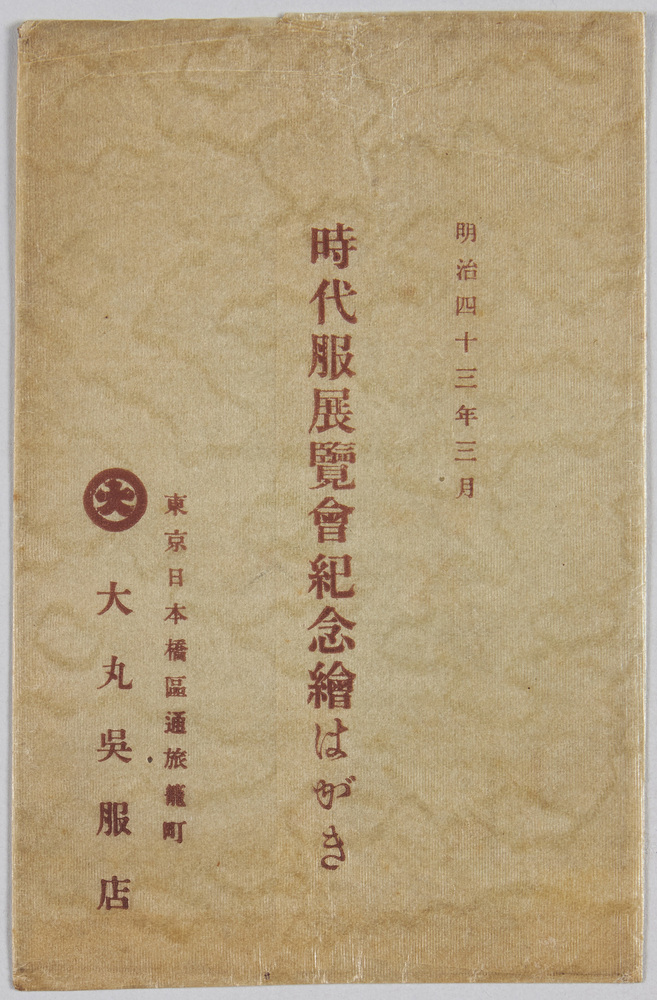 明治四十三年三月
時代服展覽會紀念繪はがき
東京日本橋區通旅籠町
大
大丸吳服店